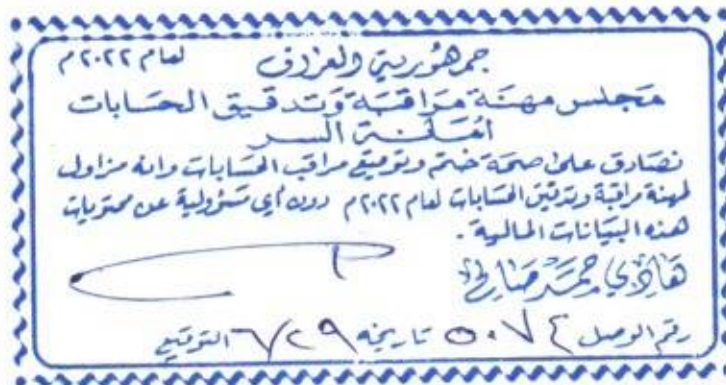 جمهورية العراق لعام ٢٠٢٢ م
مجلس مهنة مراقبة وتدقيق الحسابات
أمانة السر
نصادق على صحة ختم وتوقيع مراقب الحسابات وانه مزاول
لمهنة مراقبة وتدقيق الحسابات لعام ٢٠٢٢ م دون أي مسؤولية عن محتويات
هذه البيانات المالية .
هادي حمد صالح
رقم الوصل ٥٠٧٤ تاريخه ٦/٢٩ التوقيع